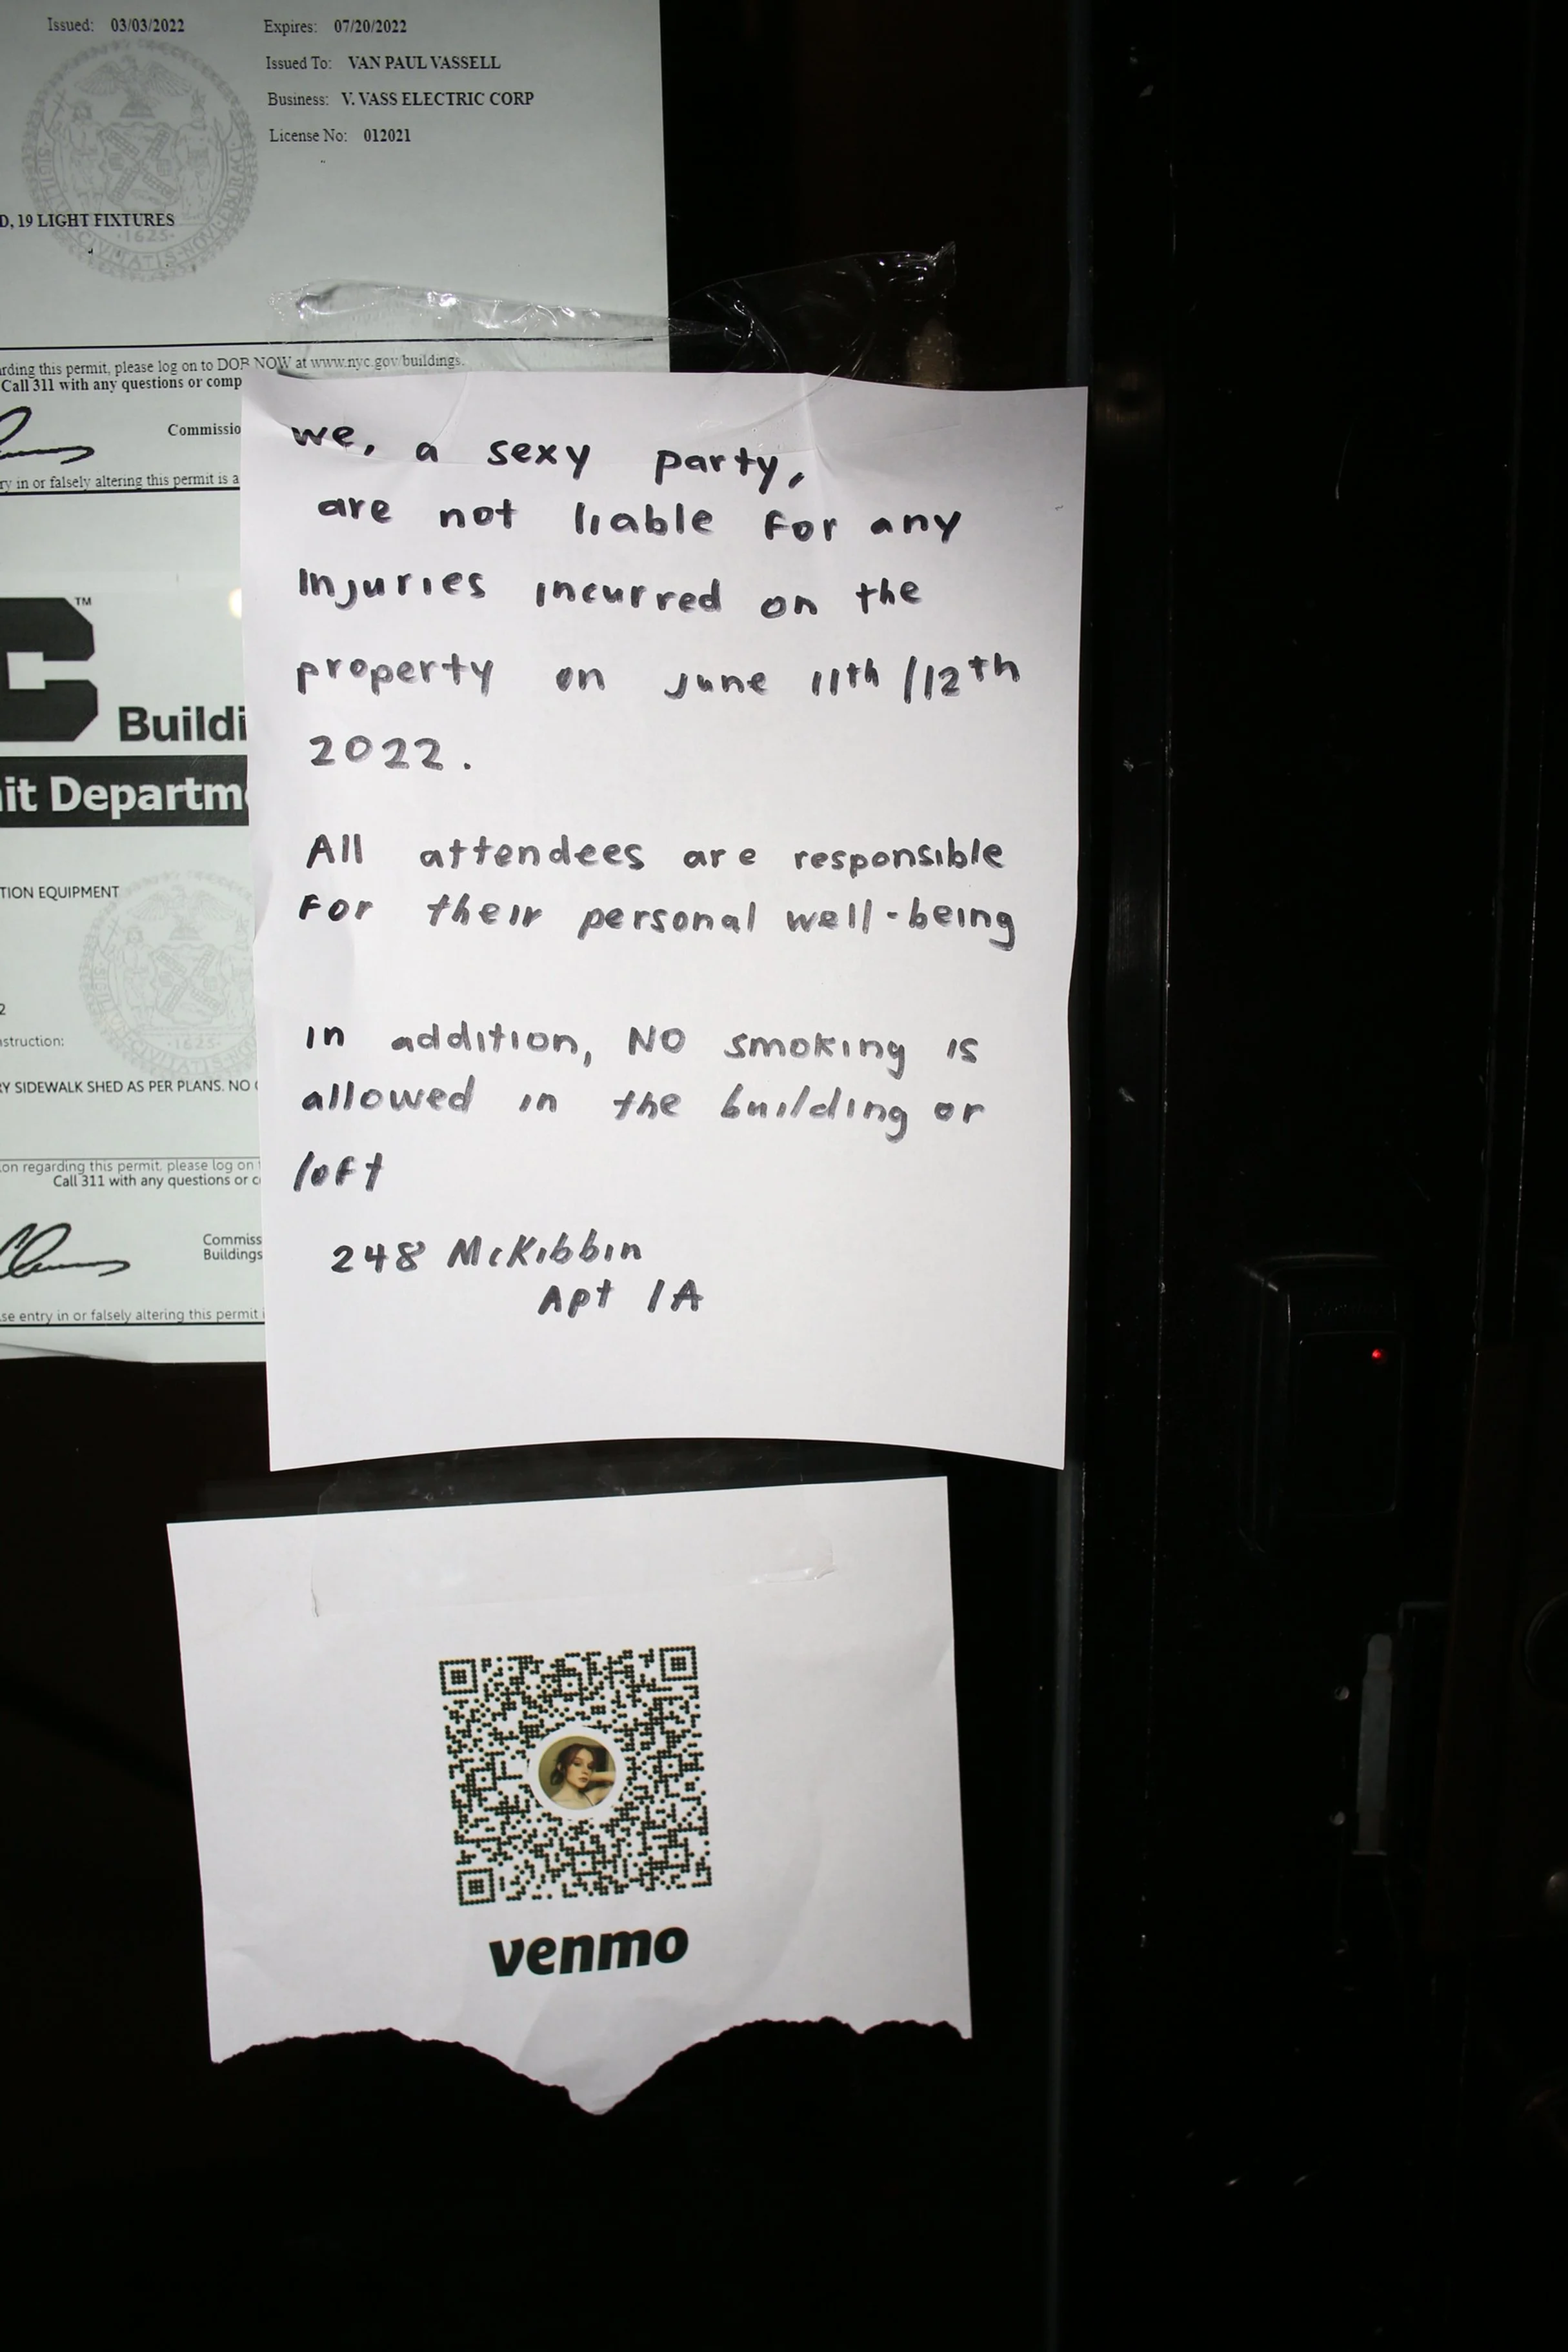 Issued: 03/03/2022 Expires: 07/20/2022
Issued To: VAN PAUL VASSELL
Business: V. VASS ELECTRIC CORP
License No: 012021
D, 19 LIGHT FIXTURES
SIGILLUM CIVITATIS NOVI EBORACI
1625
rding this permit, please log on to DOB NOW at www.nyc.gov/buildings.
Call 311 with any questions or comp
Commissio
ry in or falsely altering this permit is a
TM
Buildi
it Departme
TION EQUIPMENT
2
struction:
Y SIDEWALK SHED AS PER PLANS. NO
1625
on regarding this permit, please log on
Call 311 with any questions or c
Commiss
Buildings
se entry in or falsely altering this permit i
we, a sexy party,
are not liable for any
Injuries incurred on the
property on june 11th/12th
2022.
All attendees are responsible
For their personal well-being
in addition, NO smoking is
allowed in the building or
loft
248 McKibbin
Apt 1A
venmo